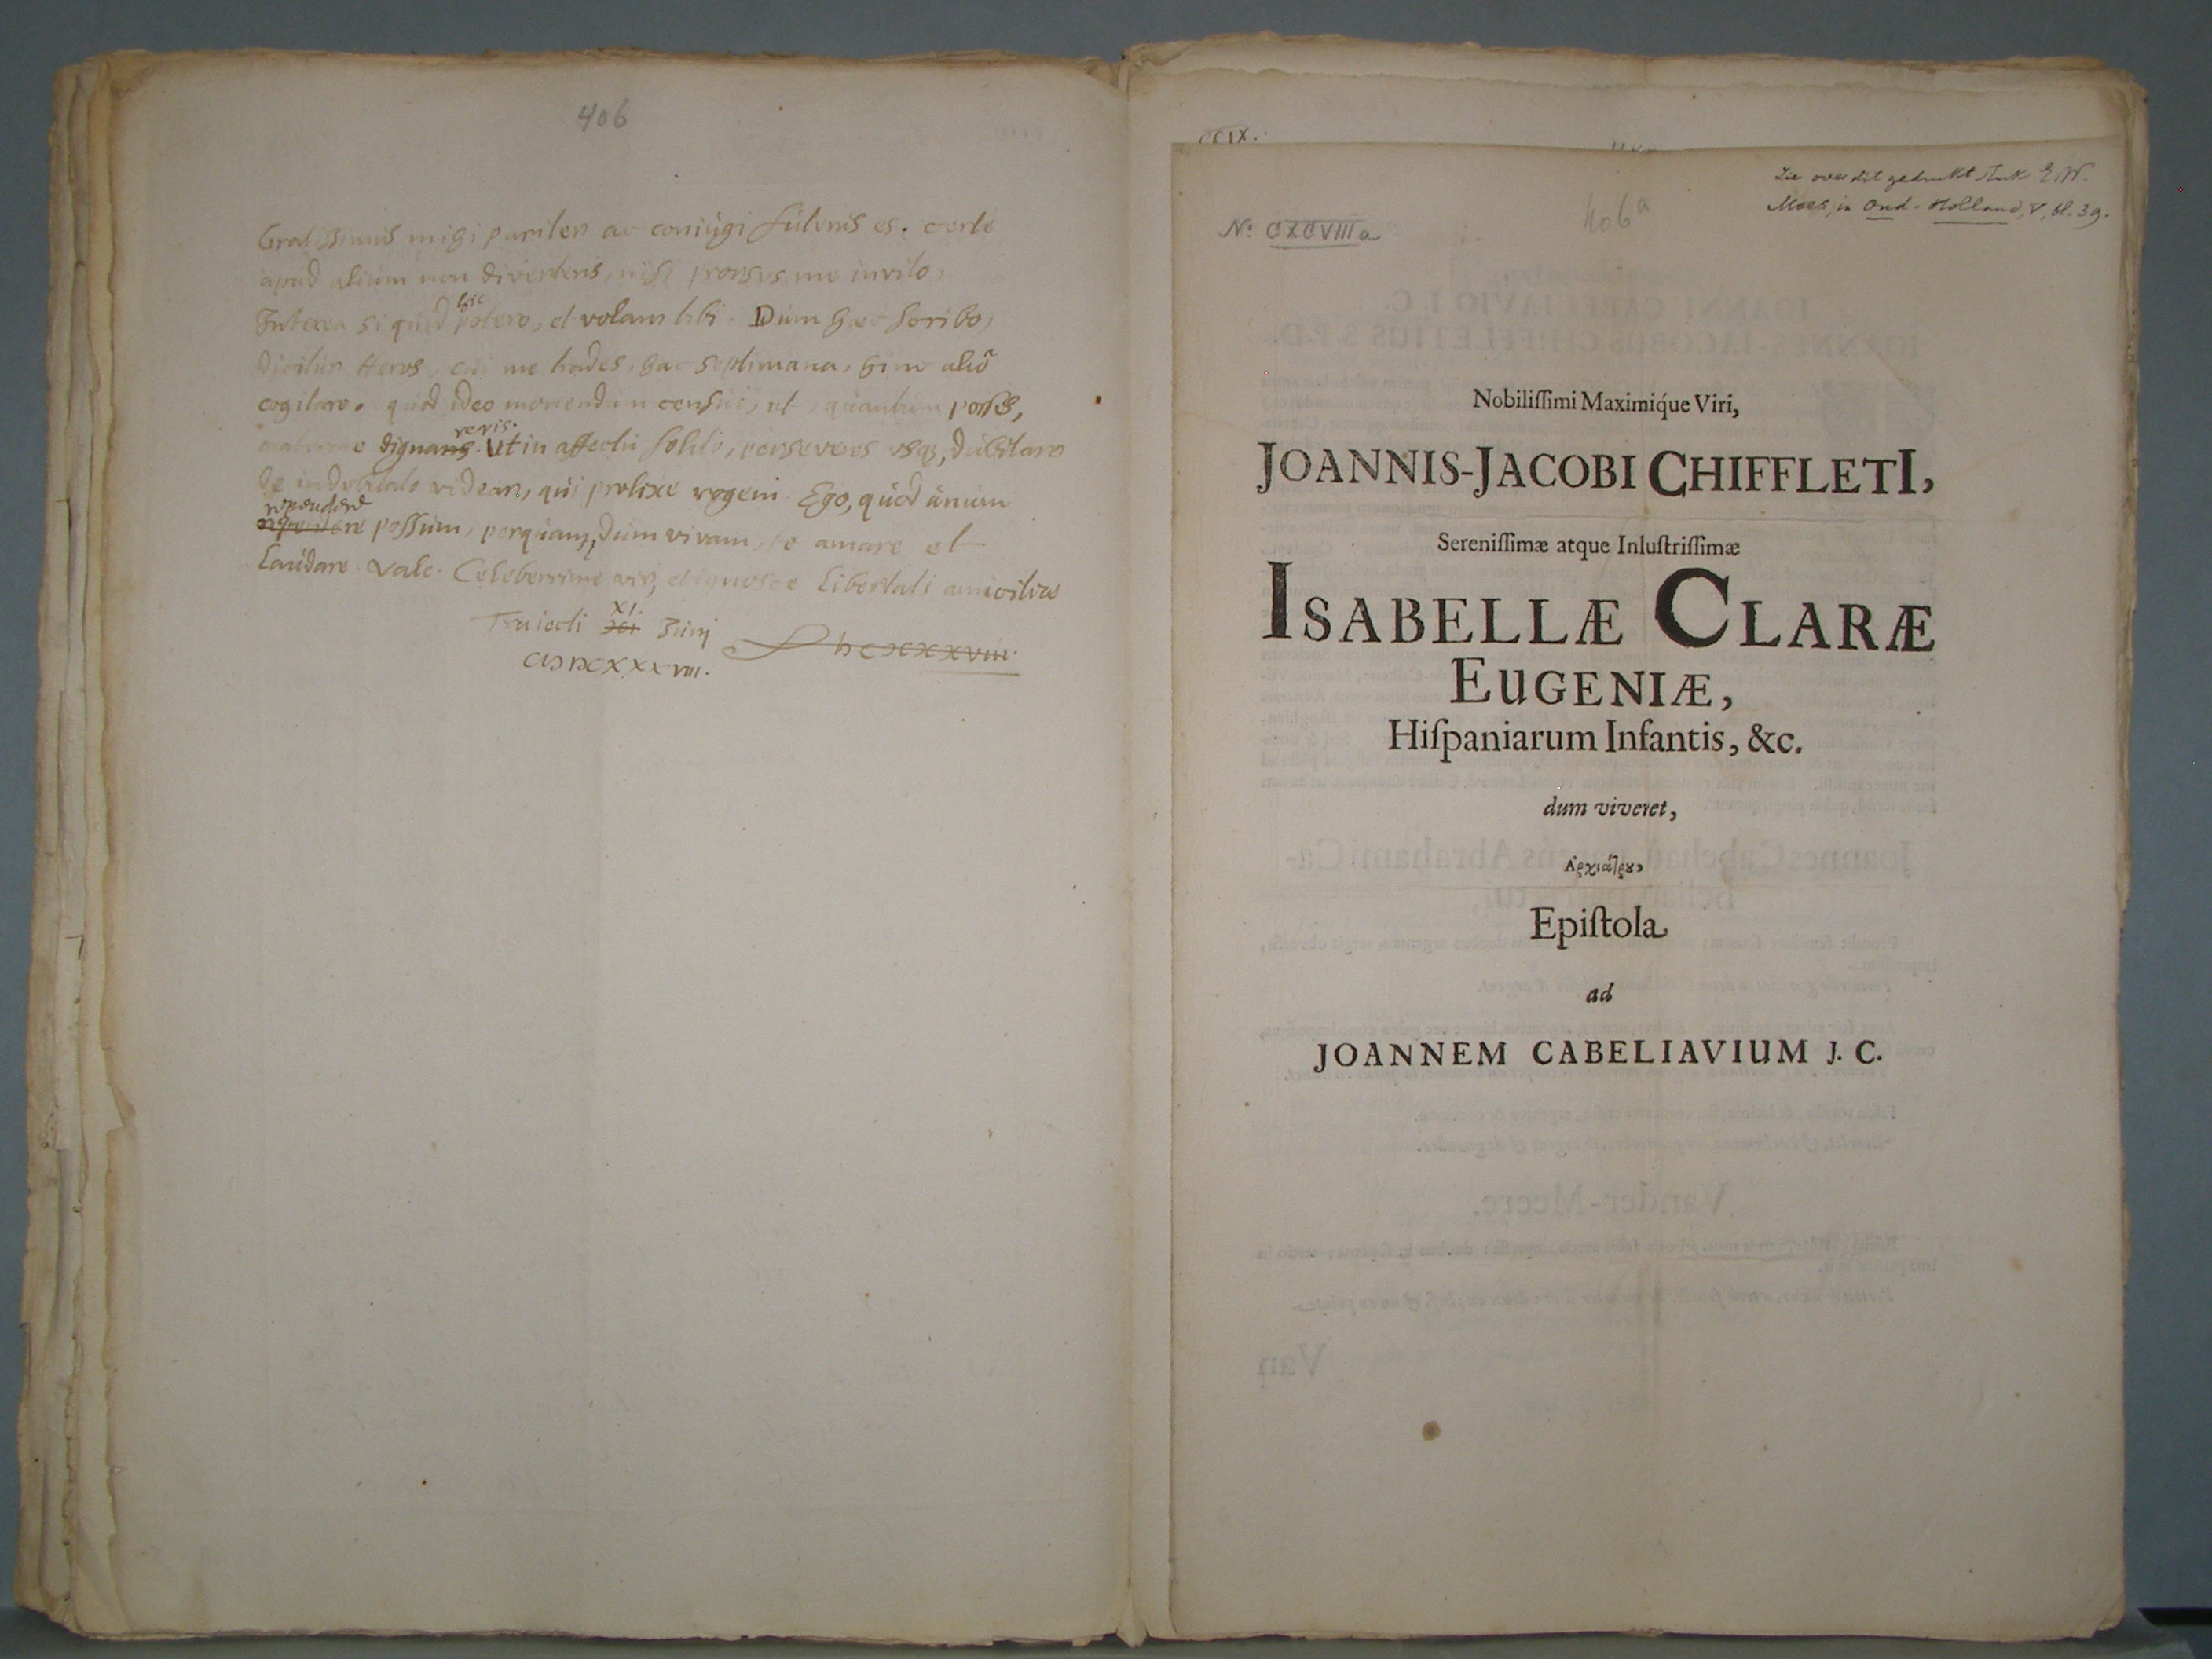 406
Gratissimus mihi pariter ac coniugi futurus es. certe
apud alium non diverteris, nisi prorsus me invito.
Interea si quid hic potero, et volam tibi. Dum haec scribo,
dicitur Heros, cui me trades, hac septimana, hinc aliò
cogitare. quod ideo monendum censui, ut, quantum potes,
maturare dignareris. Ut in affectu solito, perseveres usq, dubitare
de indubitato videar, qui prolixe rogem. Ego, quod unum
rependere possum, pergam, dum vivam, te amare et
laudare. Vale. Celeberrime vir, et ignosce libertati amicitiae
Traiecti XI Junij
CIƆIƆCXXXVIII.
CCIX.
Zie over dit gedrukt stuk E.W.
Moes, in Oud-Holland, V, bl. 39.
406a
No CXCVIIIa
Nobiliſſimi Maximiq́ue Viri,
JOANNIS-JACOBI CHIFFLETI,
Sereniſſimæ atque Inluſtriſſimæ
ISABELLÆ CLARÆ
EUGENIÆ,
Hiſpaniarum Infantis, &c.
dum viveret,
Ἀρχιάτρου,
Epiſtola
ad
JOANNEM CABELIAVIUM J. C.